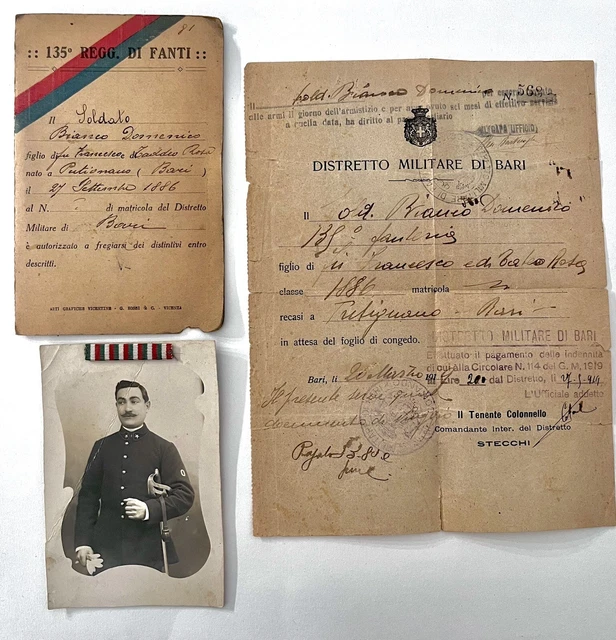 81
:: 135º REGG. DI FANTI ::
Il Soldato
Bianco Domenico
figlio di fu Francesco e Taddeo Rosa
nato a Putignano (Bari)
il 27 Settembre 1886
al N. di matricola del Distretto
Militare di Bari
è autorizzato a fregiarsi dei distintivi entro
descritti.
ARTI GRAFICHE VICENTINE - G. ROSSI & C. - VICENZA
Il sold. Bianco Domenico N. 568
alle armi il giorno dell'armistizio e per aver sei mesi di effettivo servizio
a quella data, ha diritto al pacco
DISTRETTO MILITARE DI BARI
Il sold. Bianco Domenico
135º fanteria
figlio di fu Francesco e di Rosa
classe 1886 matricola
recasi a Putignano - Bari -
in attesa del foglio di congedo.
DISTRETTO MILITARE DI BARI
Effettuato il pagamento delle Indennità
di cui Alla Circolare N. 114 del G. M. 1919
in lire 200 dal Distretto, il
L'Ufficiale addetto
Bari, li 20 Marzo 191
Il presente
documento di
Il Tenente Colonnello
Comandante Inter. del Distretto
STECCHI